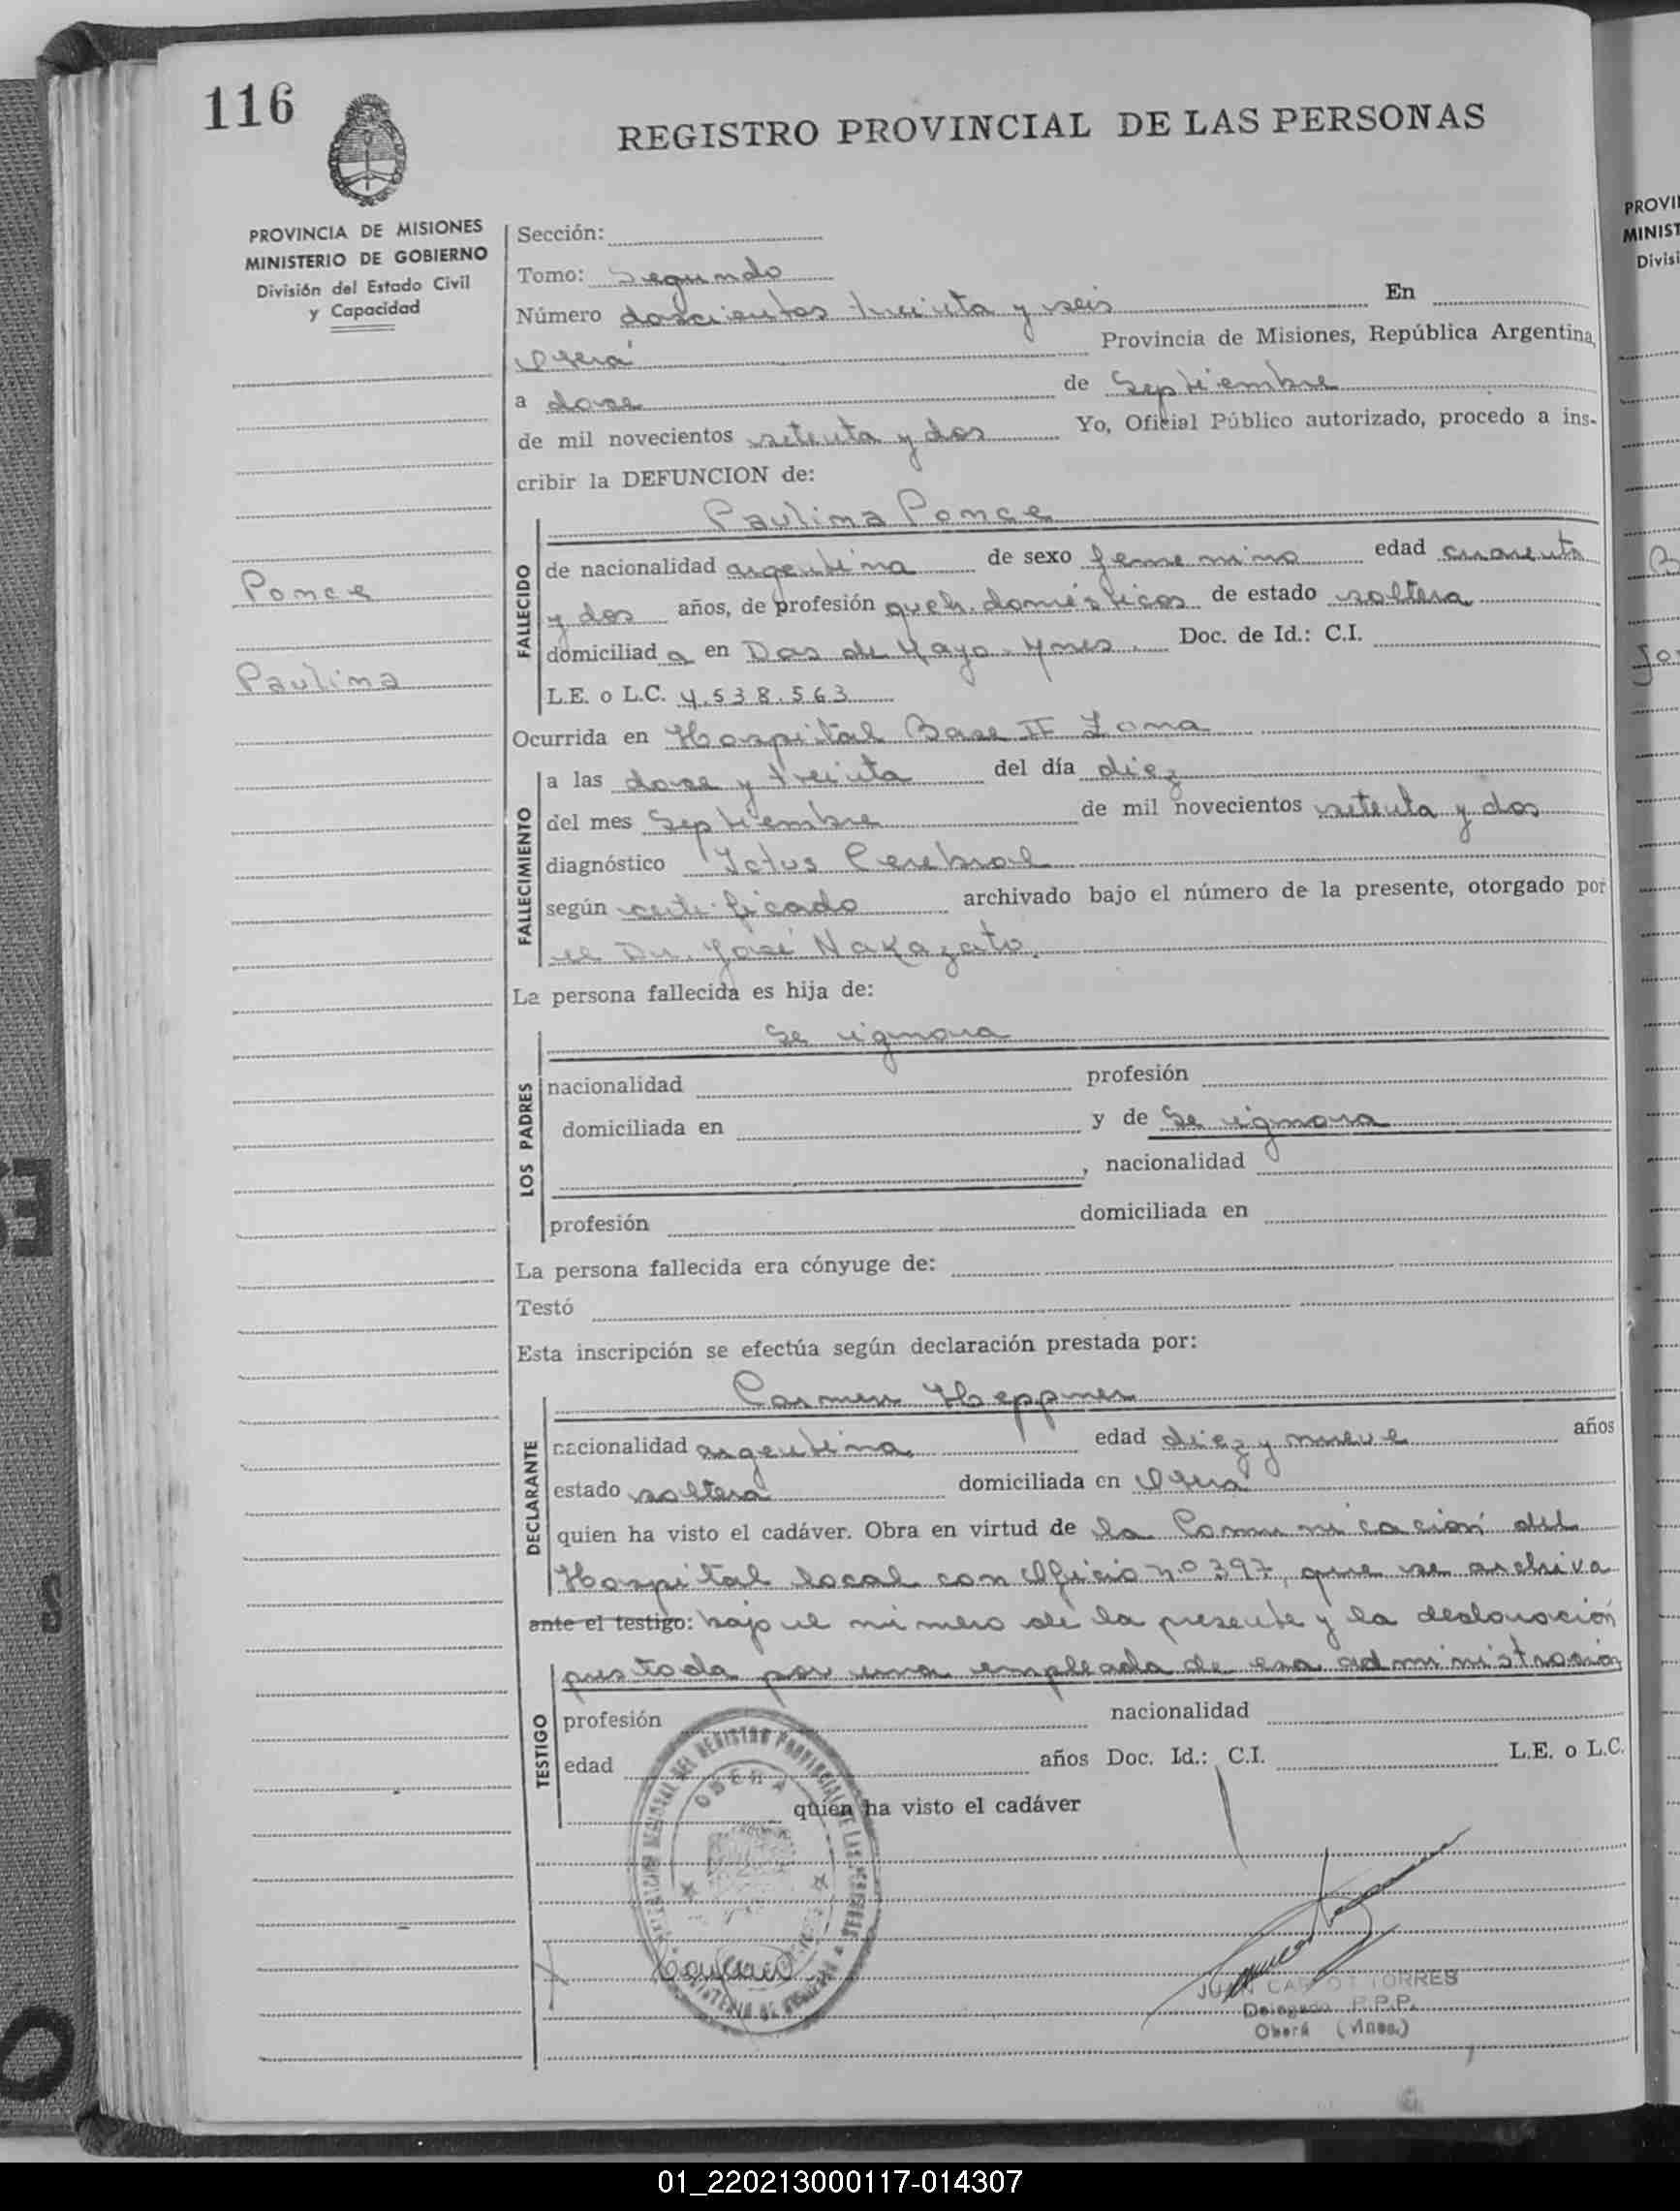 116
REGISTRO PROVINCIAL DE LAS PERSONAS
PROVINCIA DE MISIONES
MINISTERIO DE GOBIERNO
División del Estado Civil
y Capacidad
Ponce
Paulina
Sección:
Tomo: Segundo
Número doscientos treinta y seis En
Oberá Provincia de Misiones, República Argentina,
a doce de Septiembre
de mil novecientos setenta y dos Yo, Oficial Público autorizado, procedo a ins-
cribir la DEFUNCION de:
Paulina Ponce
FALLECIDO
de nacionalidad argentina de sexo femenino edad cuarenta
y dos años, de profesión queh. domésticos de estado soltera
domiciliad a en Dos de Mayo - Mnes. Doc. de Id.: C.I.
L.E. o L.C. 4.538.563
Ocurrida en Hospital Base II Zona
FALLECIMIENTO
a las doce y treinta del día diez
del mes Septiembre de mil novecientos setenta y dos
diagnóstico Ictus Cerebral
según certificado archivado bajo el número de la presente, otorgado por
el Dr. José Nakazato.
La persona fallecida es hija de:
Se ignora
LOS PADRES
nacionalidad profesión
domiciliada en y de Se ignora
, nacionalidad
profesión domiciliada en
La persona fallecida era cónyuge de:
Testó
Esta inscripción se efectúa según declaración prestada por:
Carmen Heppner
DECLARANTE
nacionalidad argentina edad diez y nueve años
estado soltera domiciliada en Oberá
quien ha visto el cadáver. Obra en virtud de la Comunicación del
Hospital local con Oficio n.o 397, que se archiva
ante el testigo: bajo el número de la presente y la declaración
prestada por una empleada de esa administración
TESTIGO
profesión nacionalidad
edad años Doc. Id.: C.I. L.E. o L.C.
quien ha visto el cadáver
DEL REGISTRO PROVINCIAL DE LAS PERSONAS
OBERA
JUAN CARLOS TORRES
Delegado R.P.P.
Oberá (Mnes.)
PROVI
MINIST
Divisi
01_220213000117-014307